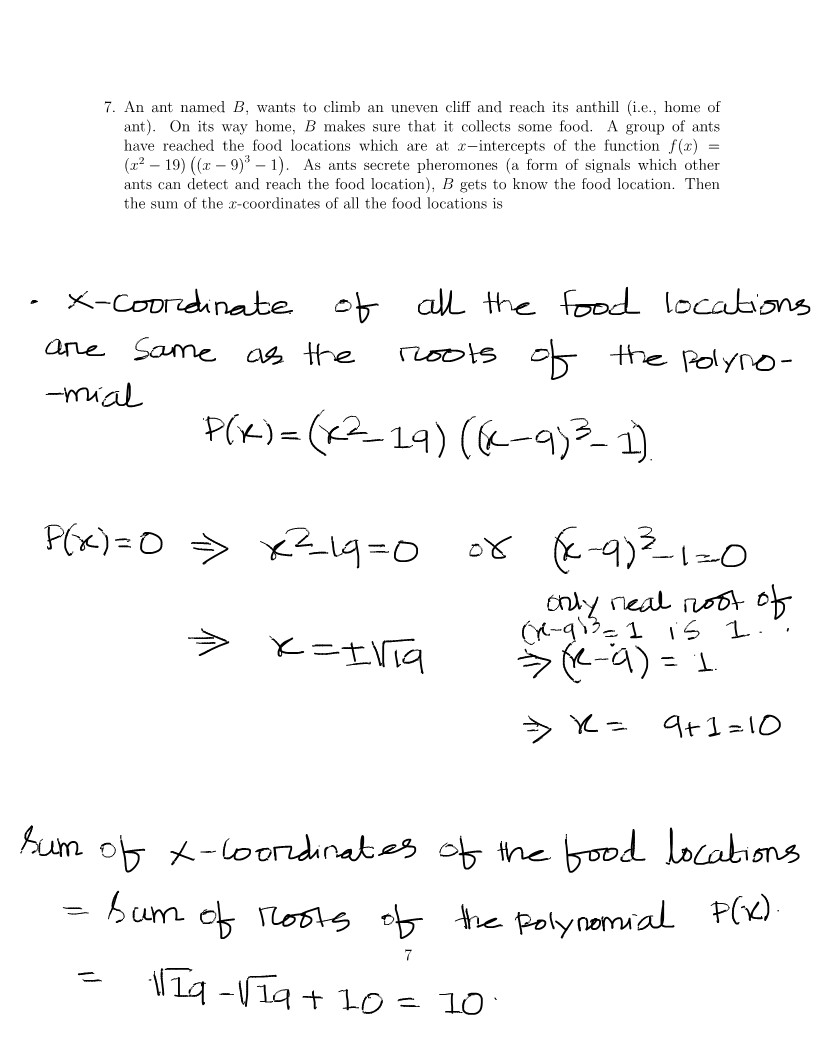 7. An ant named B, wants to climb an uneven cliff and reach its anthill (i.e., home of
ant). On its way home, B makes sure that it collects some food. A group of ants
have reached the food locations which are at x−intercepts of the function f(x) =
(x² − 19) ((x − 9)³ − 1). As ants secrete pheromones (a form of signals which other
ants can detect and reach the food location), B gets to know the food location. Then
the sum of the x-coordinates of all the food locations is
· X-Coordinate of all the food locations
are same as the roots of the polyno-
-mial
P(x) = (x² - 19) ((x-9)³ - 1).
P(x) = 0 ⇒ x² - 19 = 0 or (x-9)³ - 1 = 0
only real root of
(x-9)³ = 1 is 1.
⇒ x = ±√19 ⇒ (x-9) = 1.
⇒ x = 9+1 = 10
Sum of x-coordinates of the food locations
= Sum of roots of the polynomial P(x).
7
= √19 - √19 + 10 = 10.